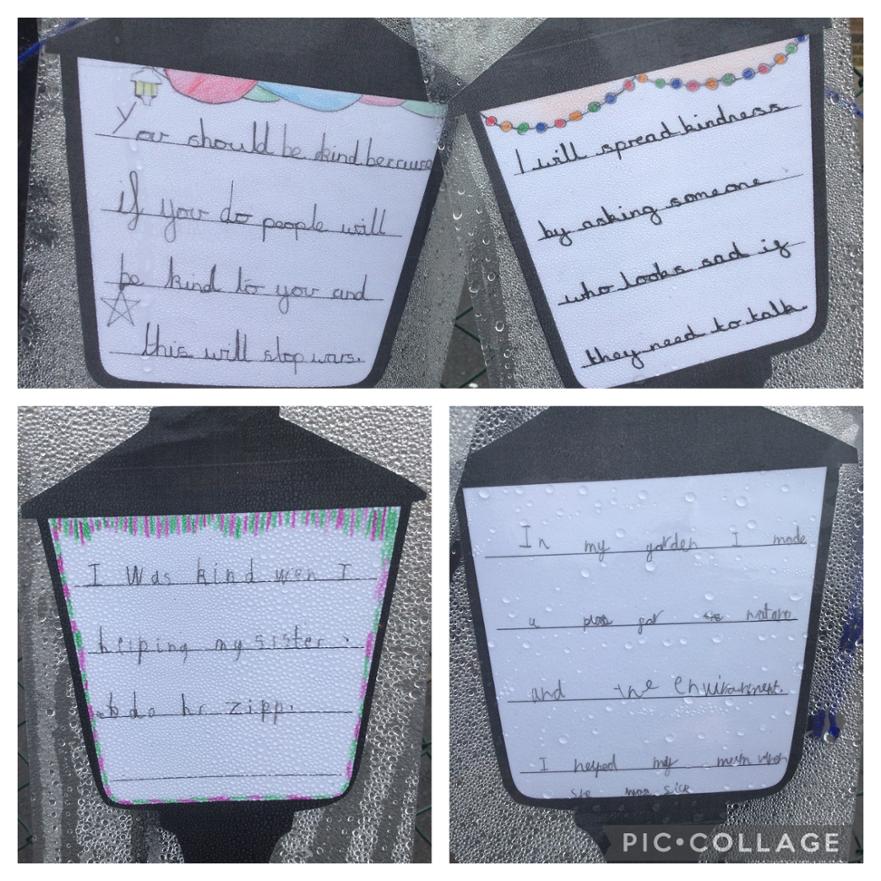 You should be kind because
if you do people will
be kind to you and
this will stop wars.
I will spread kindness
by asking someone
who looks sad if
they need to talk.
I was kind wen I
helping my sister.
to do hr zipp.
In my garden I made
a place for the nature
and the environment.
I helped my mum when
she was sick
PIC•COLLAGE